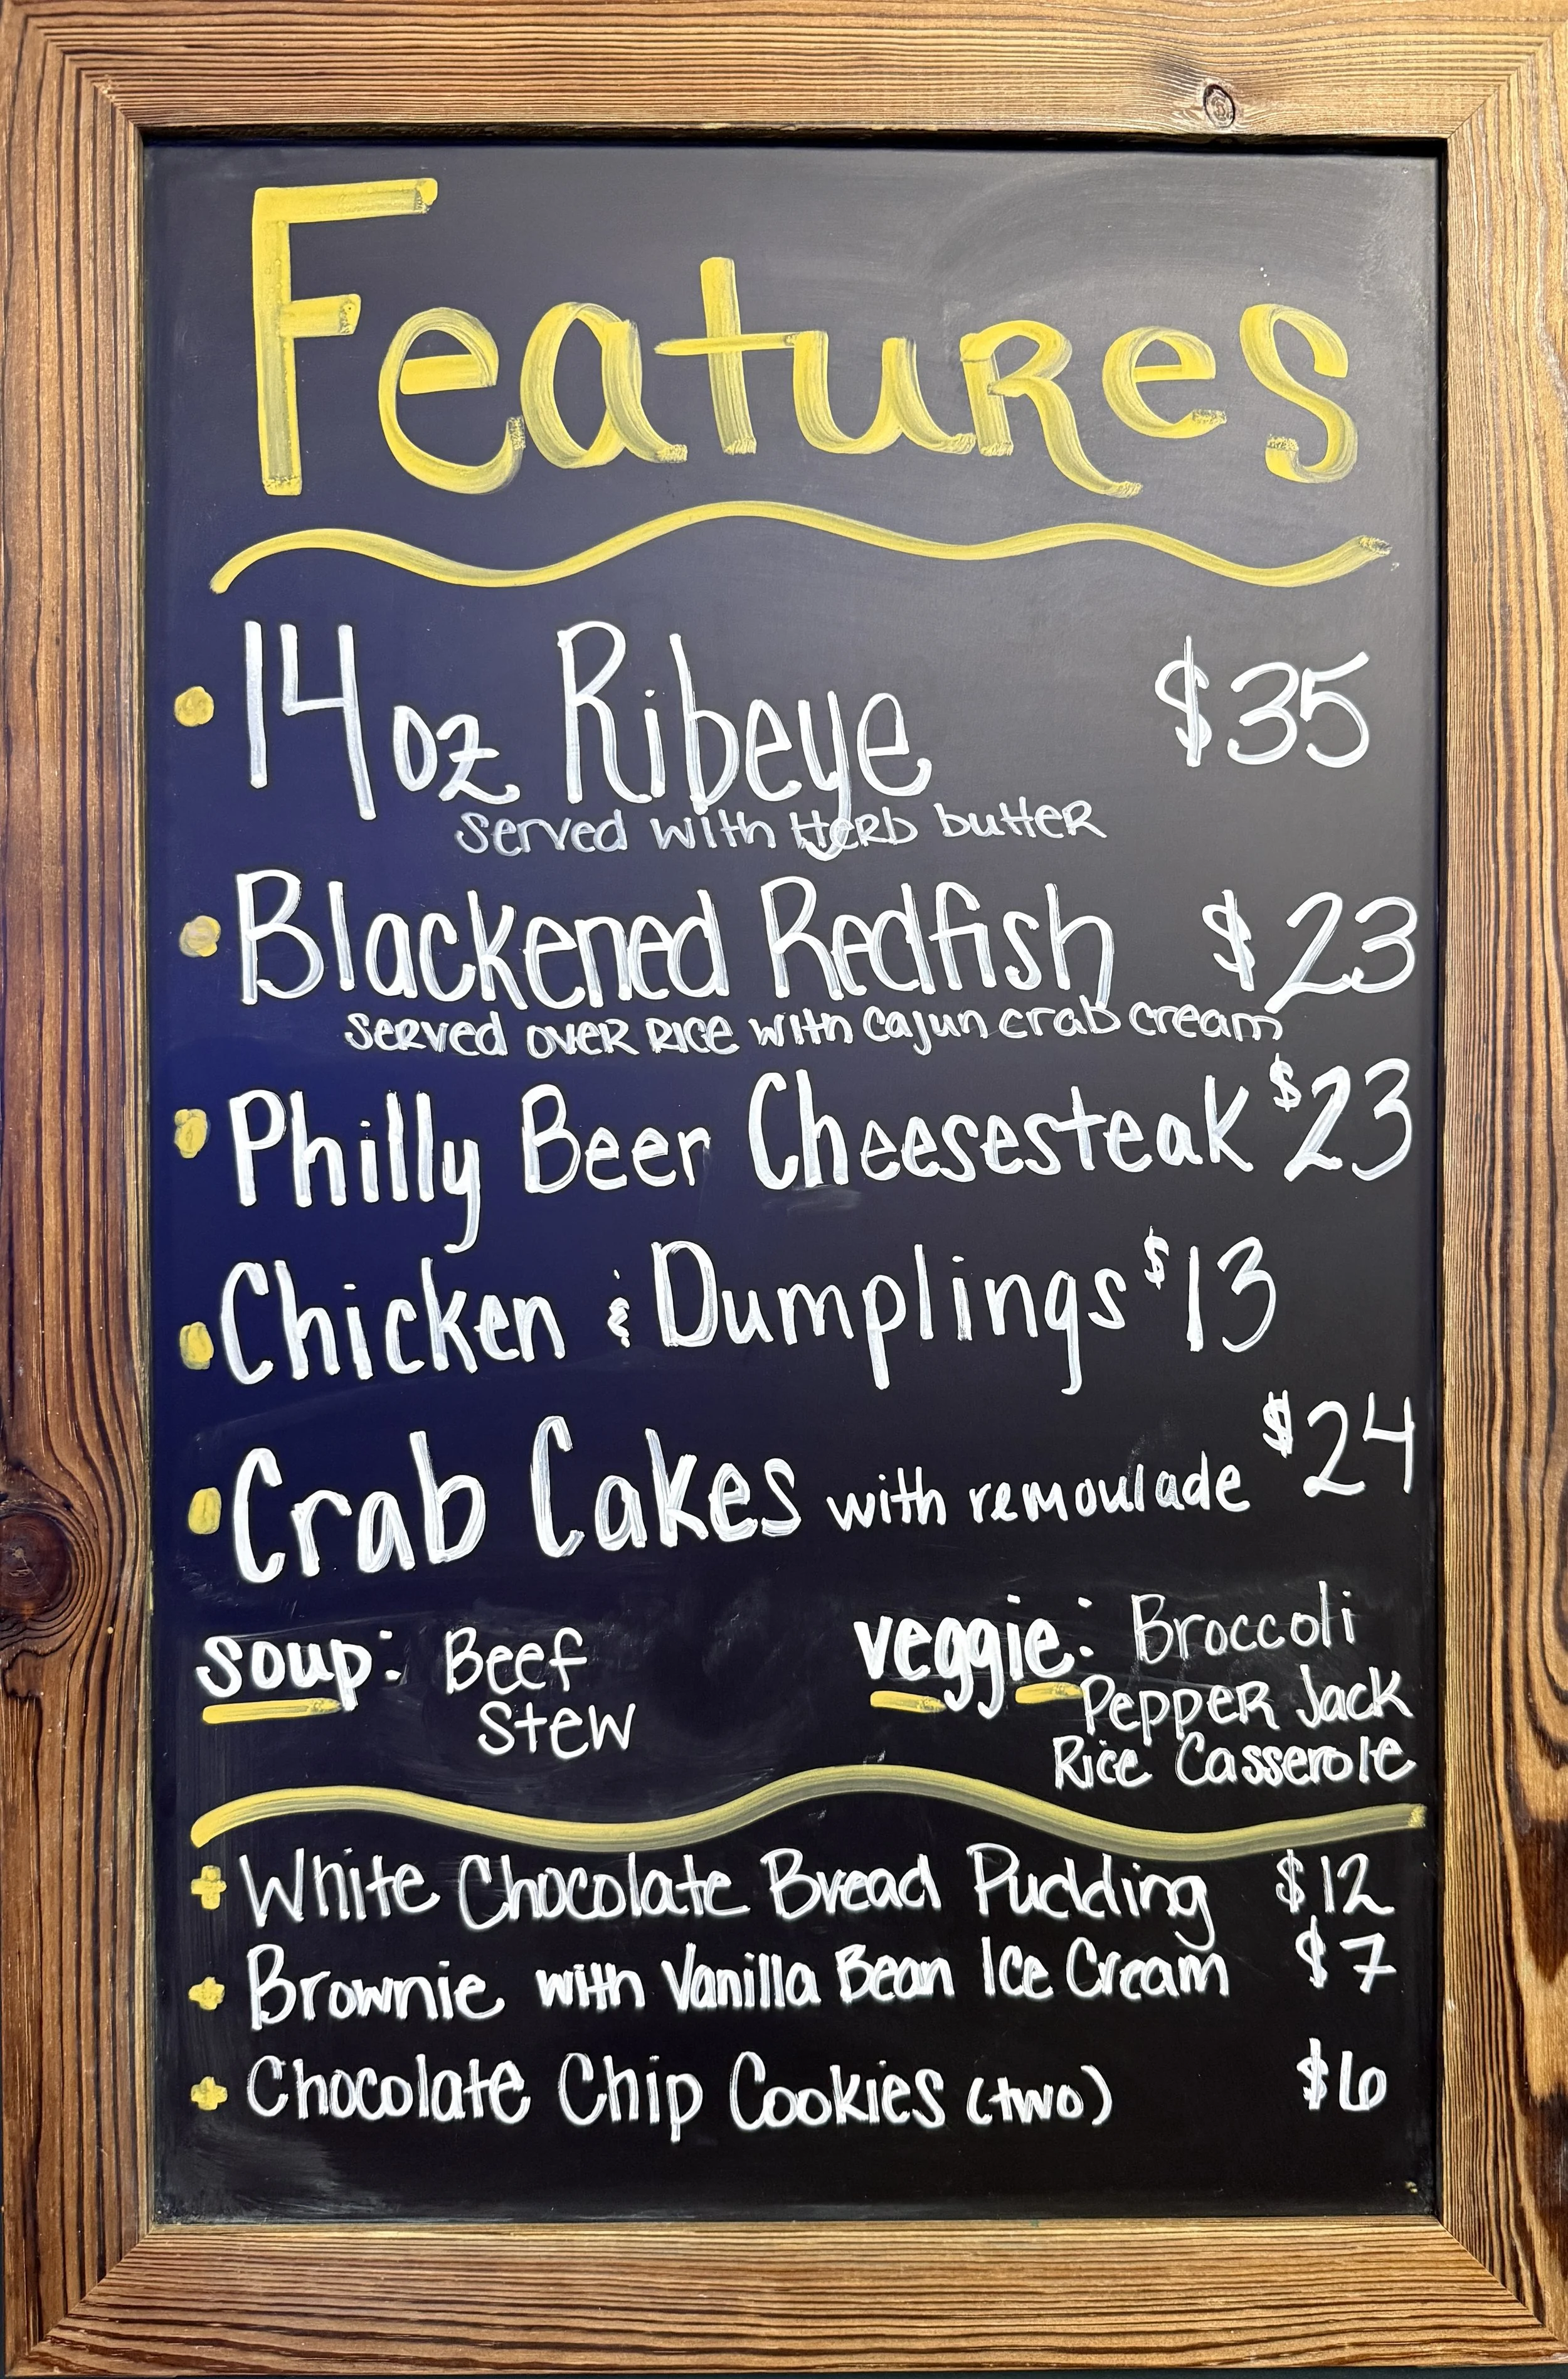 Features
14oz Ribeye $35
served with Herb butter
Blackened Redfish $23
served over rice with cajun crab cream
Philly Beer Cheesesteak $23
Chicken & Dumplings $13
Crab Cakes with remoulade $24
soup: Beef Stew
veggie: Broccoli
Pepper Jack
Rice Casserole
White Chocolate Bread Pudding $12
Brownie with Vanilla Bean Ice Cream $7
Chocolate Chip Cookies (two) $6